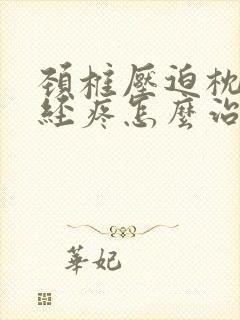 頚椎壓迫枕
經疼怎麼治
華妃